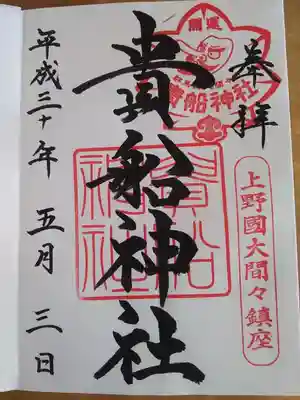 奉拝
上野國大間々鎮座
開運
貴船神社
貴船神社
貴船神社
平成三十年 五月 三日